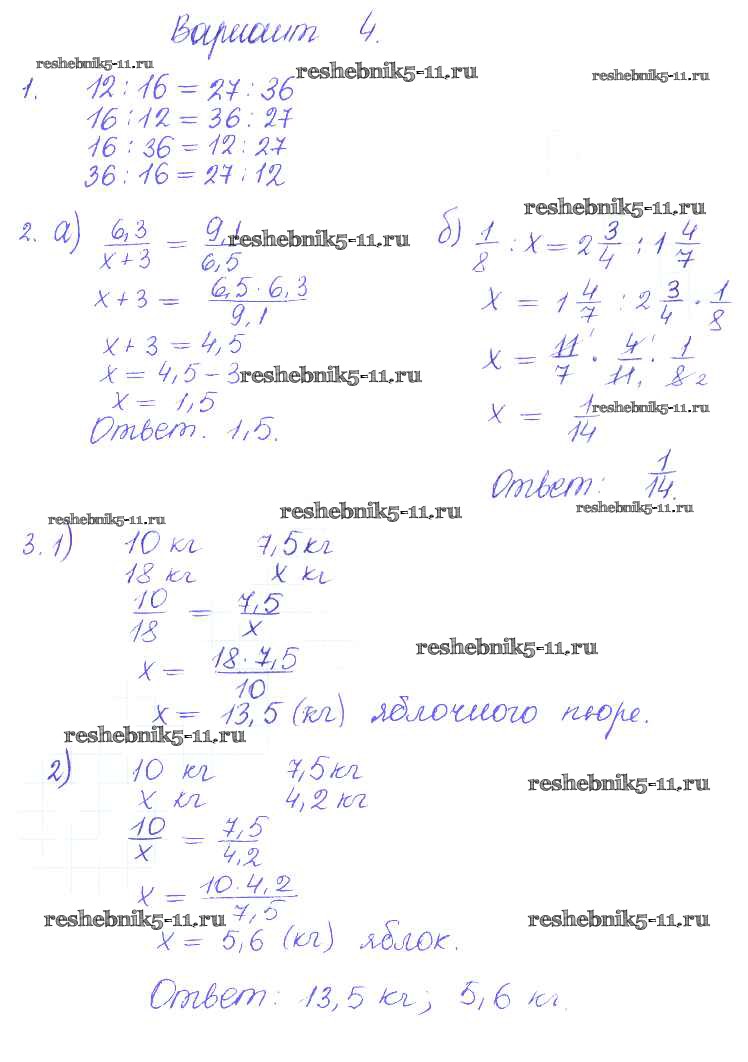 Вариант 4.
reshebnik5-11.ru reshebnik5-11.ru reshebnik5-11.ru
1. 12 : 16 = 27 : 36
16 : 12 = 36 : 27
16 : 36 = 12 : 27
36 : 16 = 27 : 12
reshebnik5-11.ru
2. а) 6,3/(x+3) = 9,1/6,5
reshebnik5-11.ru
б) 1/8 : x = 2 3/4 : 1 4/7
x + 3 = (6,5 · 6,3)/9,1
x = 1 4/7 : 2 3/4 · 1/8
x + 3 = 4,5
x = 11/7 · 4/11 · 1/8
x = 4,5 - 3
reshebnik5-11.ru
x = 1,5
x = 1/14
reshebnik5-11.ru
Ответ. 1,5.
Ответ: 1/14.
reshebnik5-11.ru reshebnik5-11.ru reshebnik5-11.ru
3. 1) 10 кг 7,5 кг
18 кг x кг
10/18 = 7,5/x
reshebnik5-11.ru
x = (18 · 7,5)/10
x = 13,5 (кг) яблочного пюре.
reshebnik5-11.ru
2) 10 кг 7,5 кг
reshebnik5-11.ru
x кг 4,2 кг
10/x = 7,5/4,2
x = (10 · 4,2)/7,5
reshebnik5-11.ru reshebnik5-11.ru
x = 5,6 (кг) яблок.
Ответ: 13,5 кг; 5,6 кг.